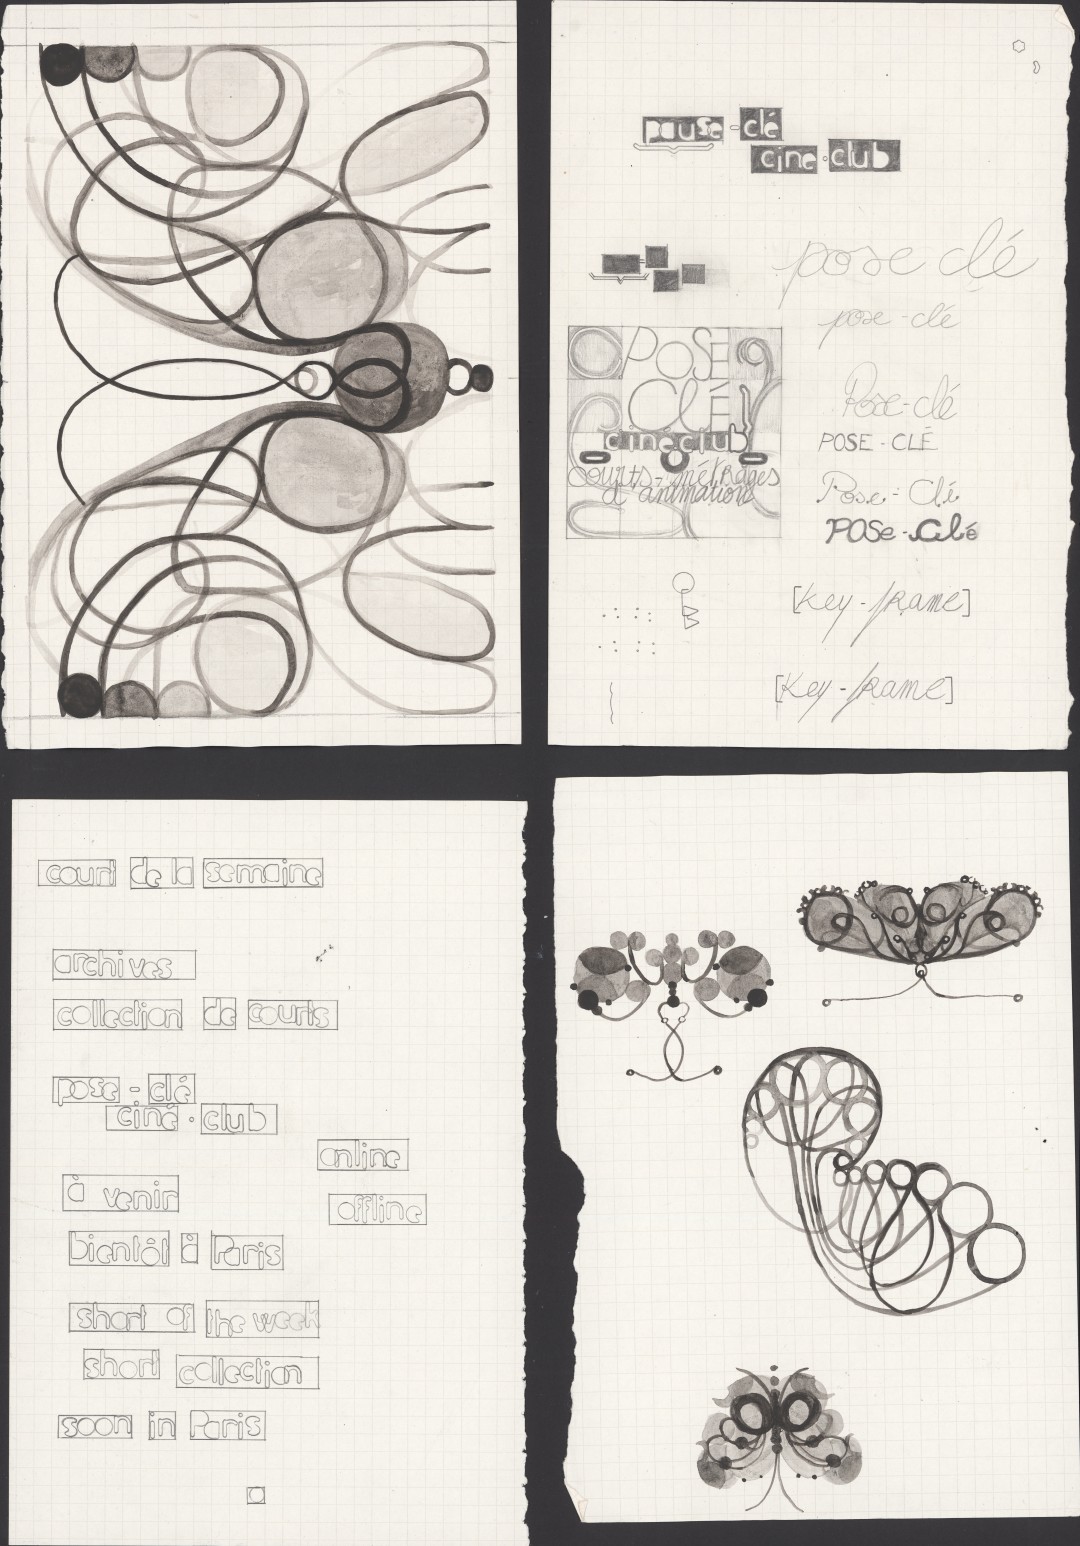 pause - clé
cine · club
pose clé
pose - clé
POSE
CLÉ
cineclub
courts-métrages
d'animation
Pose-clé
POSE - CLÉ
Pose - Clé
POSe - Clé
[Key - frame]
[Key - frame]
court de la semaine
archives
collection de courts
pose - clé
ciné · club
online
à venir
offline
bientôt à Paris
short of the week
short collection
soon in Paris